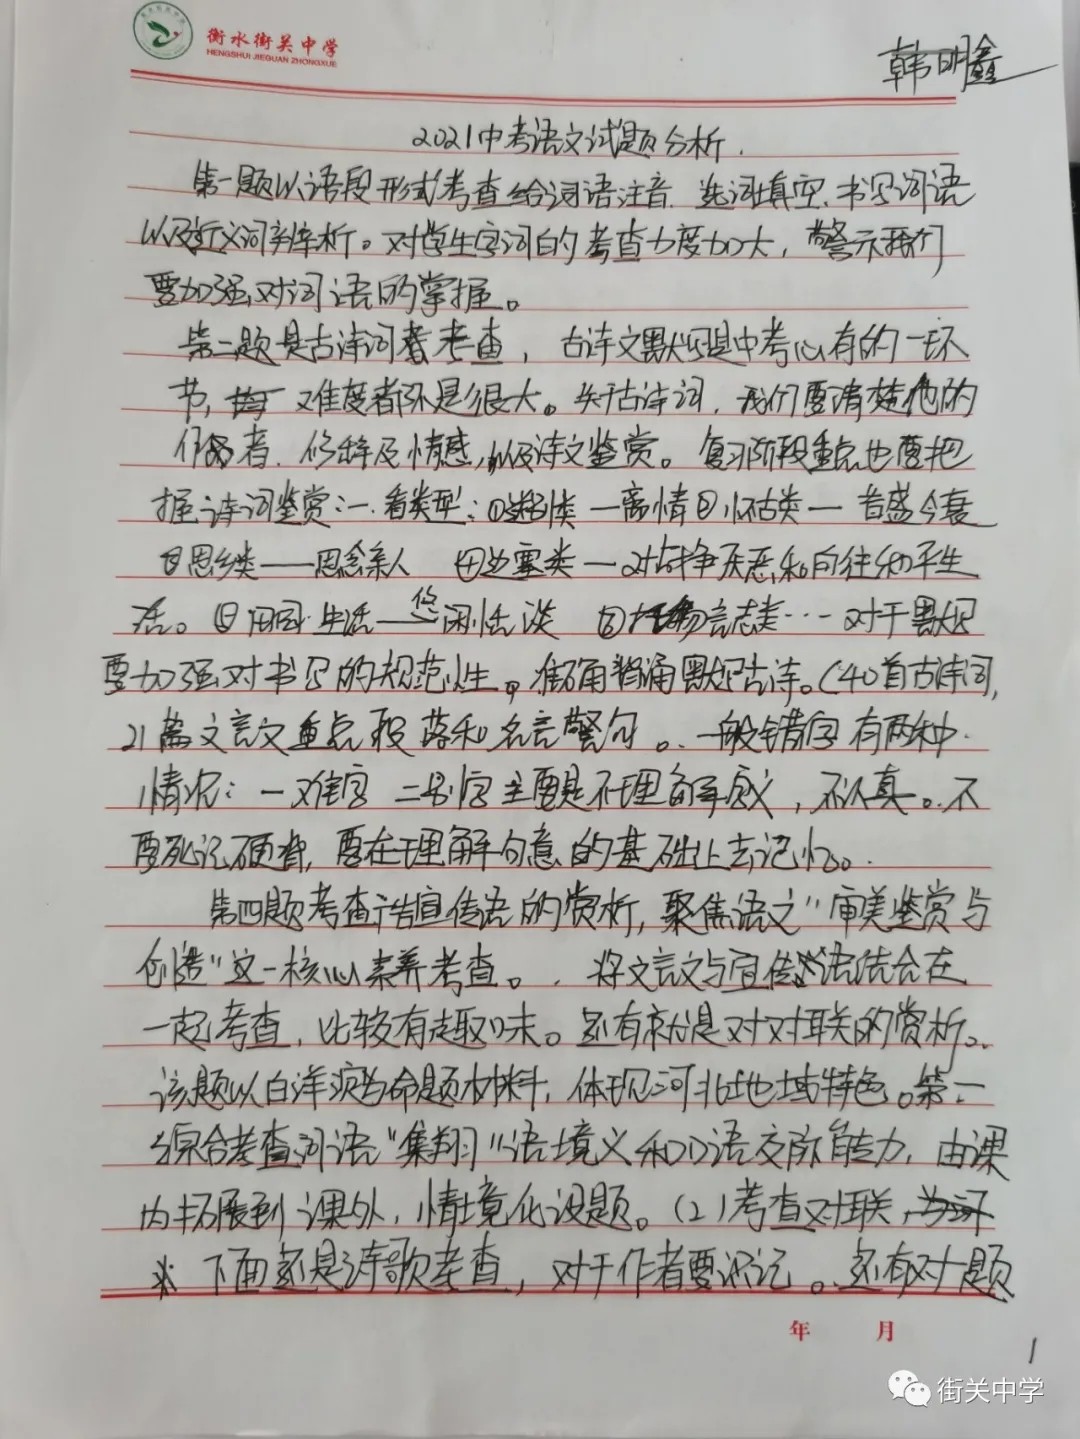 衡水街关中学
HENGSHUI JIEGUAN ZHONGXUE
韩明鑫
2021中考语文试题分析.
第一题以语段形式考查给词语注音、选词填空、书写词语
以及近义词辨析。对学生字词的考查力度加大，警示我们
要加强对词语的掌握。
第二题是古诗词考查，古诗文默写是中考必有的一环
节，难度都不是很大。关于古诗词，我们要清楚他的
作者、修辞及情感，以及诗文鉴赏。复习阶段重点也要把
握诗词鉴赏：一.看类型：①送别类—离情②怀古类—昔盛今衰
③思乡类——思念亲人 ④边塞类—对战争厌恶和向往和平生
活。⑤田园生活—悠闲恬淡 ⑥托物言志类…对于默写
要加强对书写的规范性。准确背诵默写古诗。（40首古诗词，
21篇文言文重点段落和名言警句。一般错字有两种
情况：一难字 二易字 主要是不理解字义，不认真。不
要死记硬背，要在理解句意的基础上去记忆。
第四题考查广告宣传语的赏析，聚焦语文“审美鉴赏与
创造”这一核心素养考查。将文言文与宣传语结合在
一起考查，比较有趣味。还有就是对对联的赏析。
该题以白洋淀为命题材料，体现河北地域特色。第一
综合考查词语“集翔”语境义和口语交际能力，由课
内拓展到课外，情境化设题。（2）考查对联，
下面还是诗歌考查，对于作者要识记。还有对题
年 月
1
街关中学